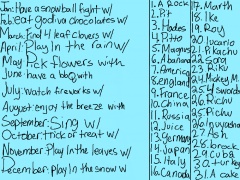 Jan: Have a snowball fight w/
Feb: eat godiva chocolates w/
March: Find 4 leaf clovers w/
April: Play in the rain w/
May: Pick flowers with
June: have a bbq with
July: Watch fireworks w/
August: enjoy the breeze with
September: Sing w/
October: trick or treat w/
November: Play in the leaves w/
December: Play in the snow w/
1. A Rock
2. P
3. I
4. Hades
5. Magnus
6. A banana
7. America
8. england
9. France
10. China
11. Russia
12. Juice
13. Germany
14. Japan
15. Italy
16. Canada
17. Marth
18. Ike
19. Roy
20. Lucario
21. Pikachu
22. Sora
23. Riku
24. Mickey M.
25. 4 Swords
26. Pichu
27. Ash
28. brock
29. Cuba
30. a turkey
31. A cake